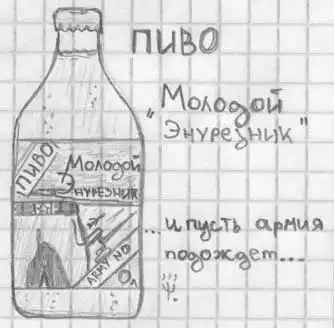 ПИВО
„Молодой
Энурезник"
ПИВО
Молодой
Энурезник
ARMY NO
...и пусть армия
подождет...